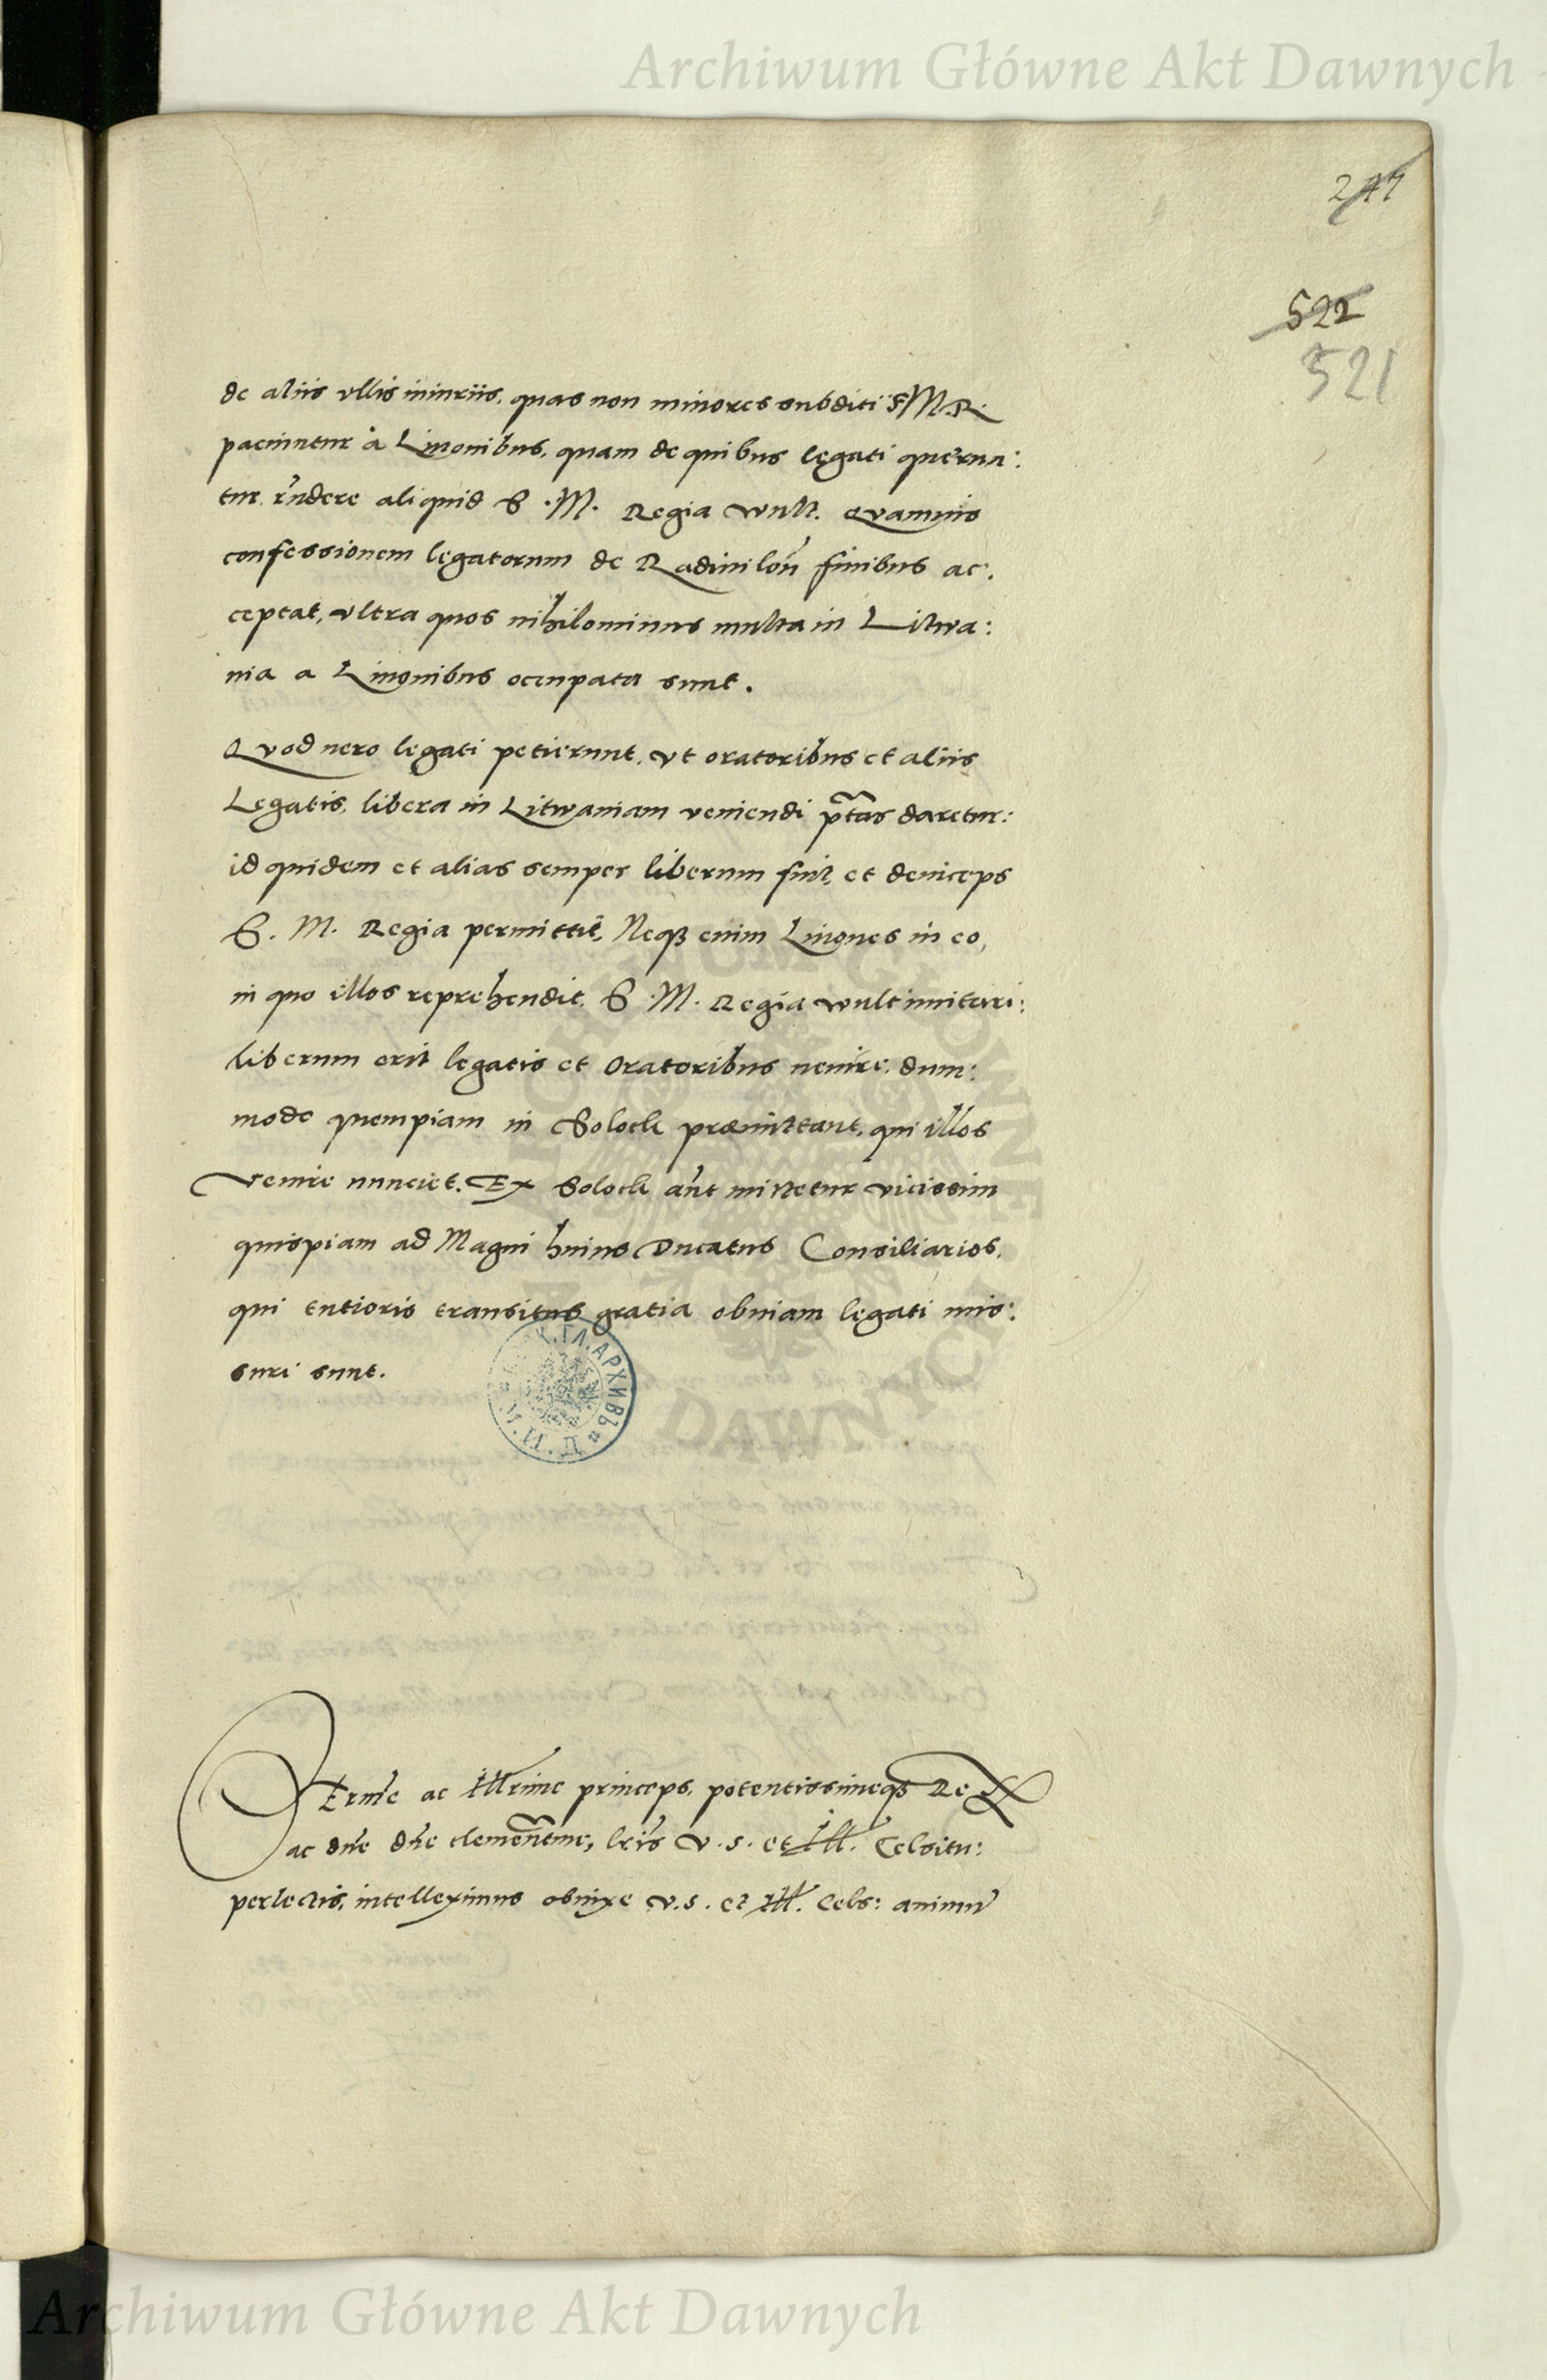 Archiwum Główne Akt Dawnych
247
522
521
de aliis vllis iniuriis, quas non minores subditi S M R
paciuntur à Liuonibus, quam de quibus legati querun:
tur. rñdere aliquid S. M. Regia wult. Quamuis
confessionem legatorum de finibus ac,
ceptat, vltra quos nihilominus multa in Litwa:
nia a Liuonibus occupata sunt.
Quod uero legati petierunt, vt oratoribus et aliis
Legatis, libera in Litwaniam veniendi ptas daretur:
id quidem et alias semper liberum fuit, et deinceps
S. M. Regia permittit, Neq3 enim Liuones in eo,
in quo illos reprehendit, S. M. Regia wult imitari:
liberum erit legatis et Oratoribus uenire, dum:
modo quempiam in Solock præmittant, qui illos
venire nunciet. Ex Solock añt mittetur vicissim
quispiam ad Magni huius Ducatus Consiliarios,
qui tutioris transitus gratia obuiam legati mis:
suri sunt.
ГЛ. АРХИВЪ
ARCHIWUM GŁÓWNE
DAWNYCH
Serme ac Illrime princeps, potentissimeq3 Rex
ac dne dne clementme, lris V. S. et Ill. Celsitu:
perlectis, intelleximus obnixe V. S. et Ill. Cels: animũ
Archiwum Główne Akt Dawnych